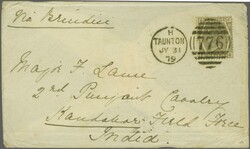 via Brindisi
H
TAUNTON
JY 31
79
776
Major F Lance
2nd Punjaub Cavalry
Kandahar Field Force
India